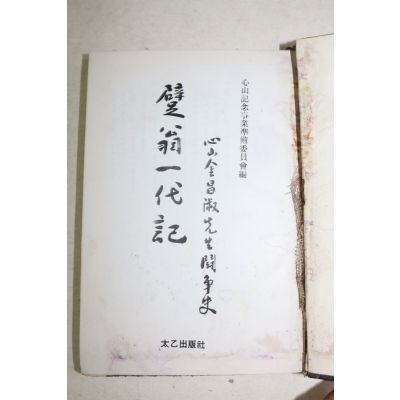 心山記念事業準備委員會編
躄翁一代記
心山金昌淑先生鬪爭史
太乙出版社